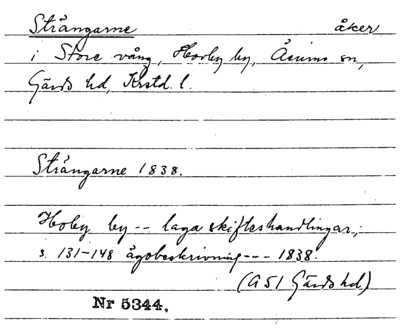 Strängarne åker
i Store vång, Horby by, Åsums sn,
Gärds hd, Krstd. l.
Strängarne 1838.
Hoby by -- laga skifteshandlingar;
s. 131-148 ägobeskrivning --- 1838.
(A 51 Gärds hd.)
Nr 5344.